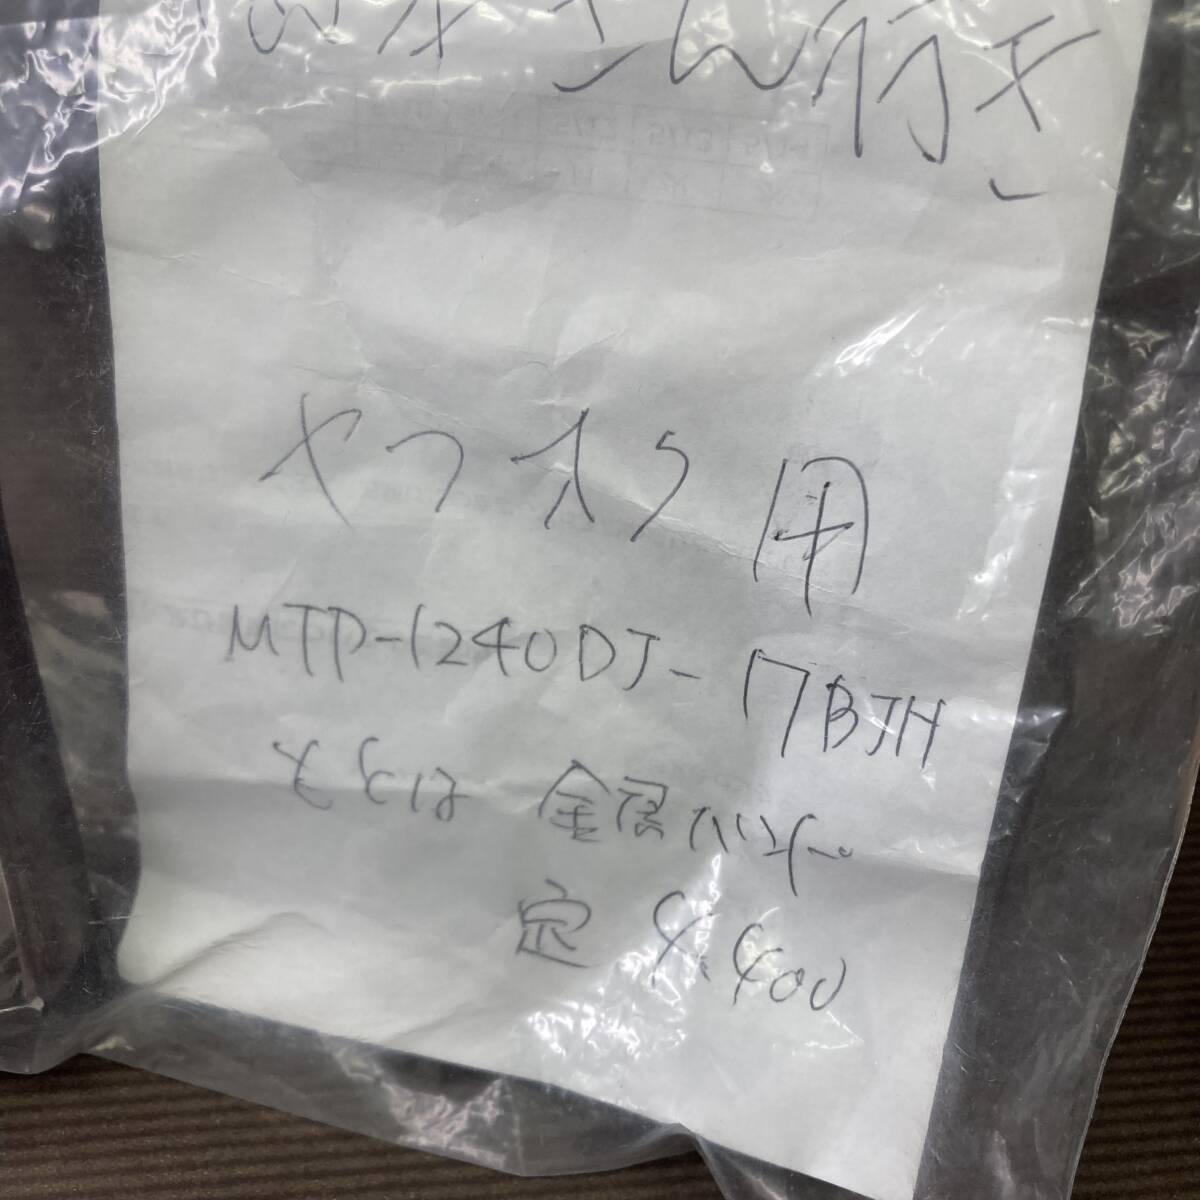 さん行き
ヤフオク用
MTP-1240DJ-17BJH
もしくは 金属バンド
定 9,400